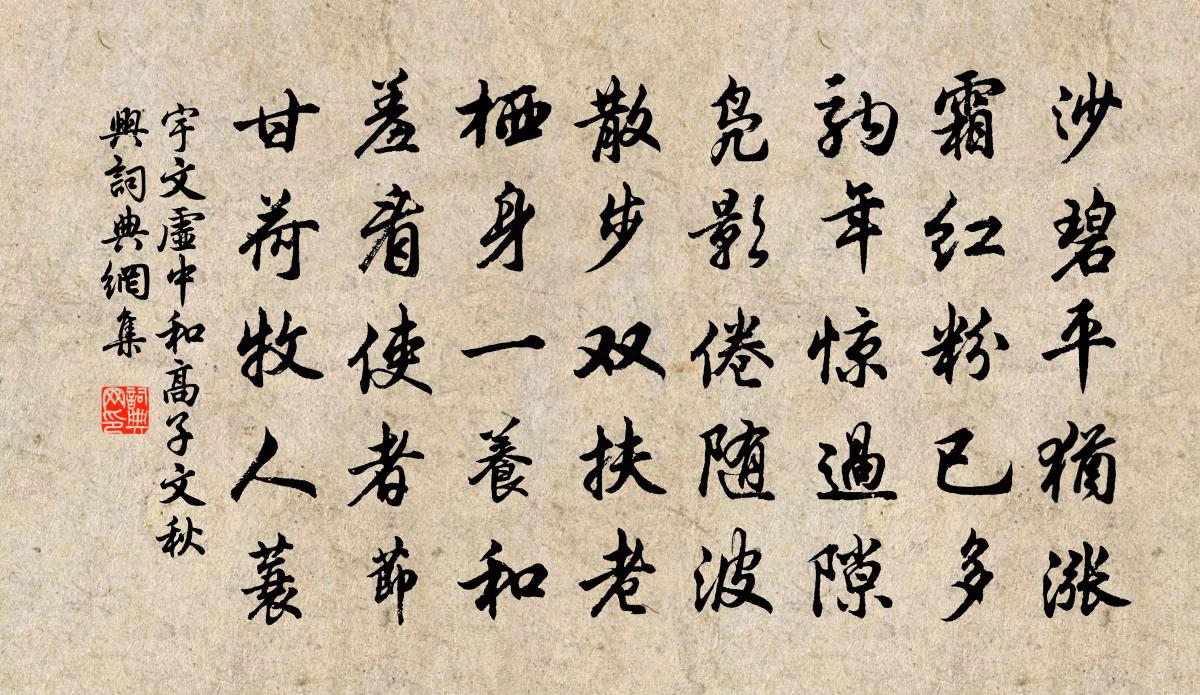 沙碧平猶涨
霜红粉已多
駒年惊過隙
凫影倦随波
散步双扶老
栖身一養和
羞看使者節
甘荷牧人蓑
宇文虛中和高子文秋
興詞典網集
詞典网印